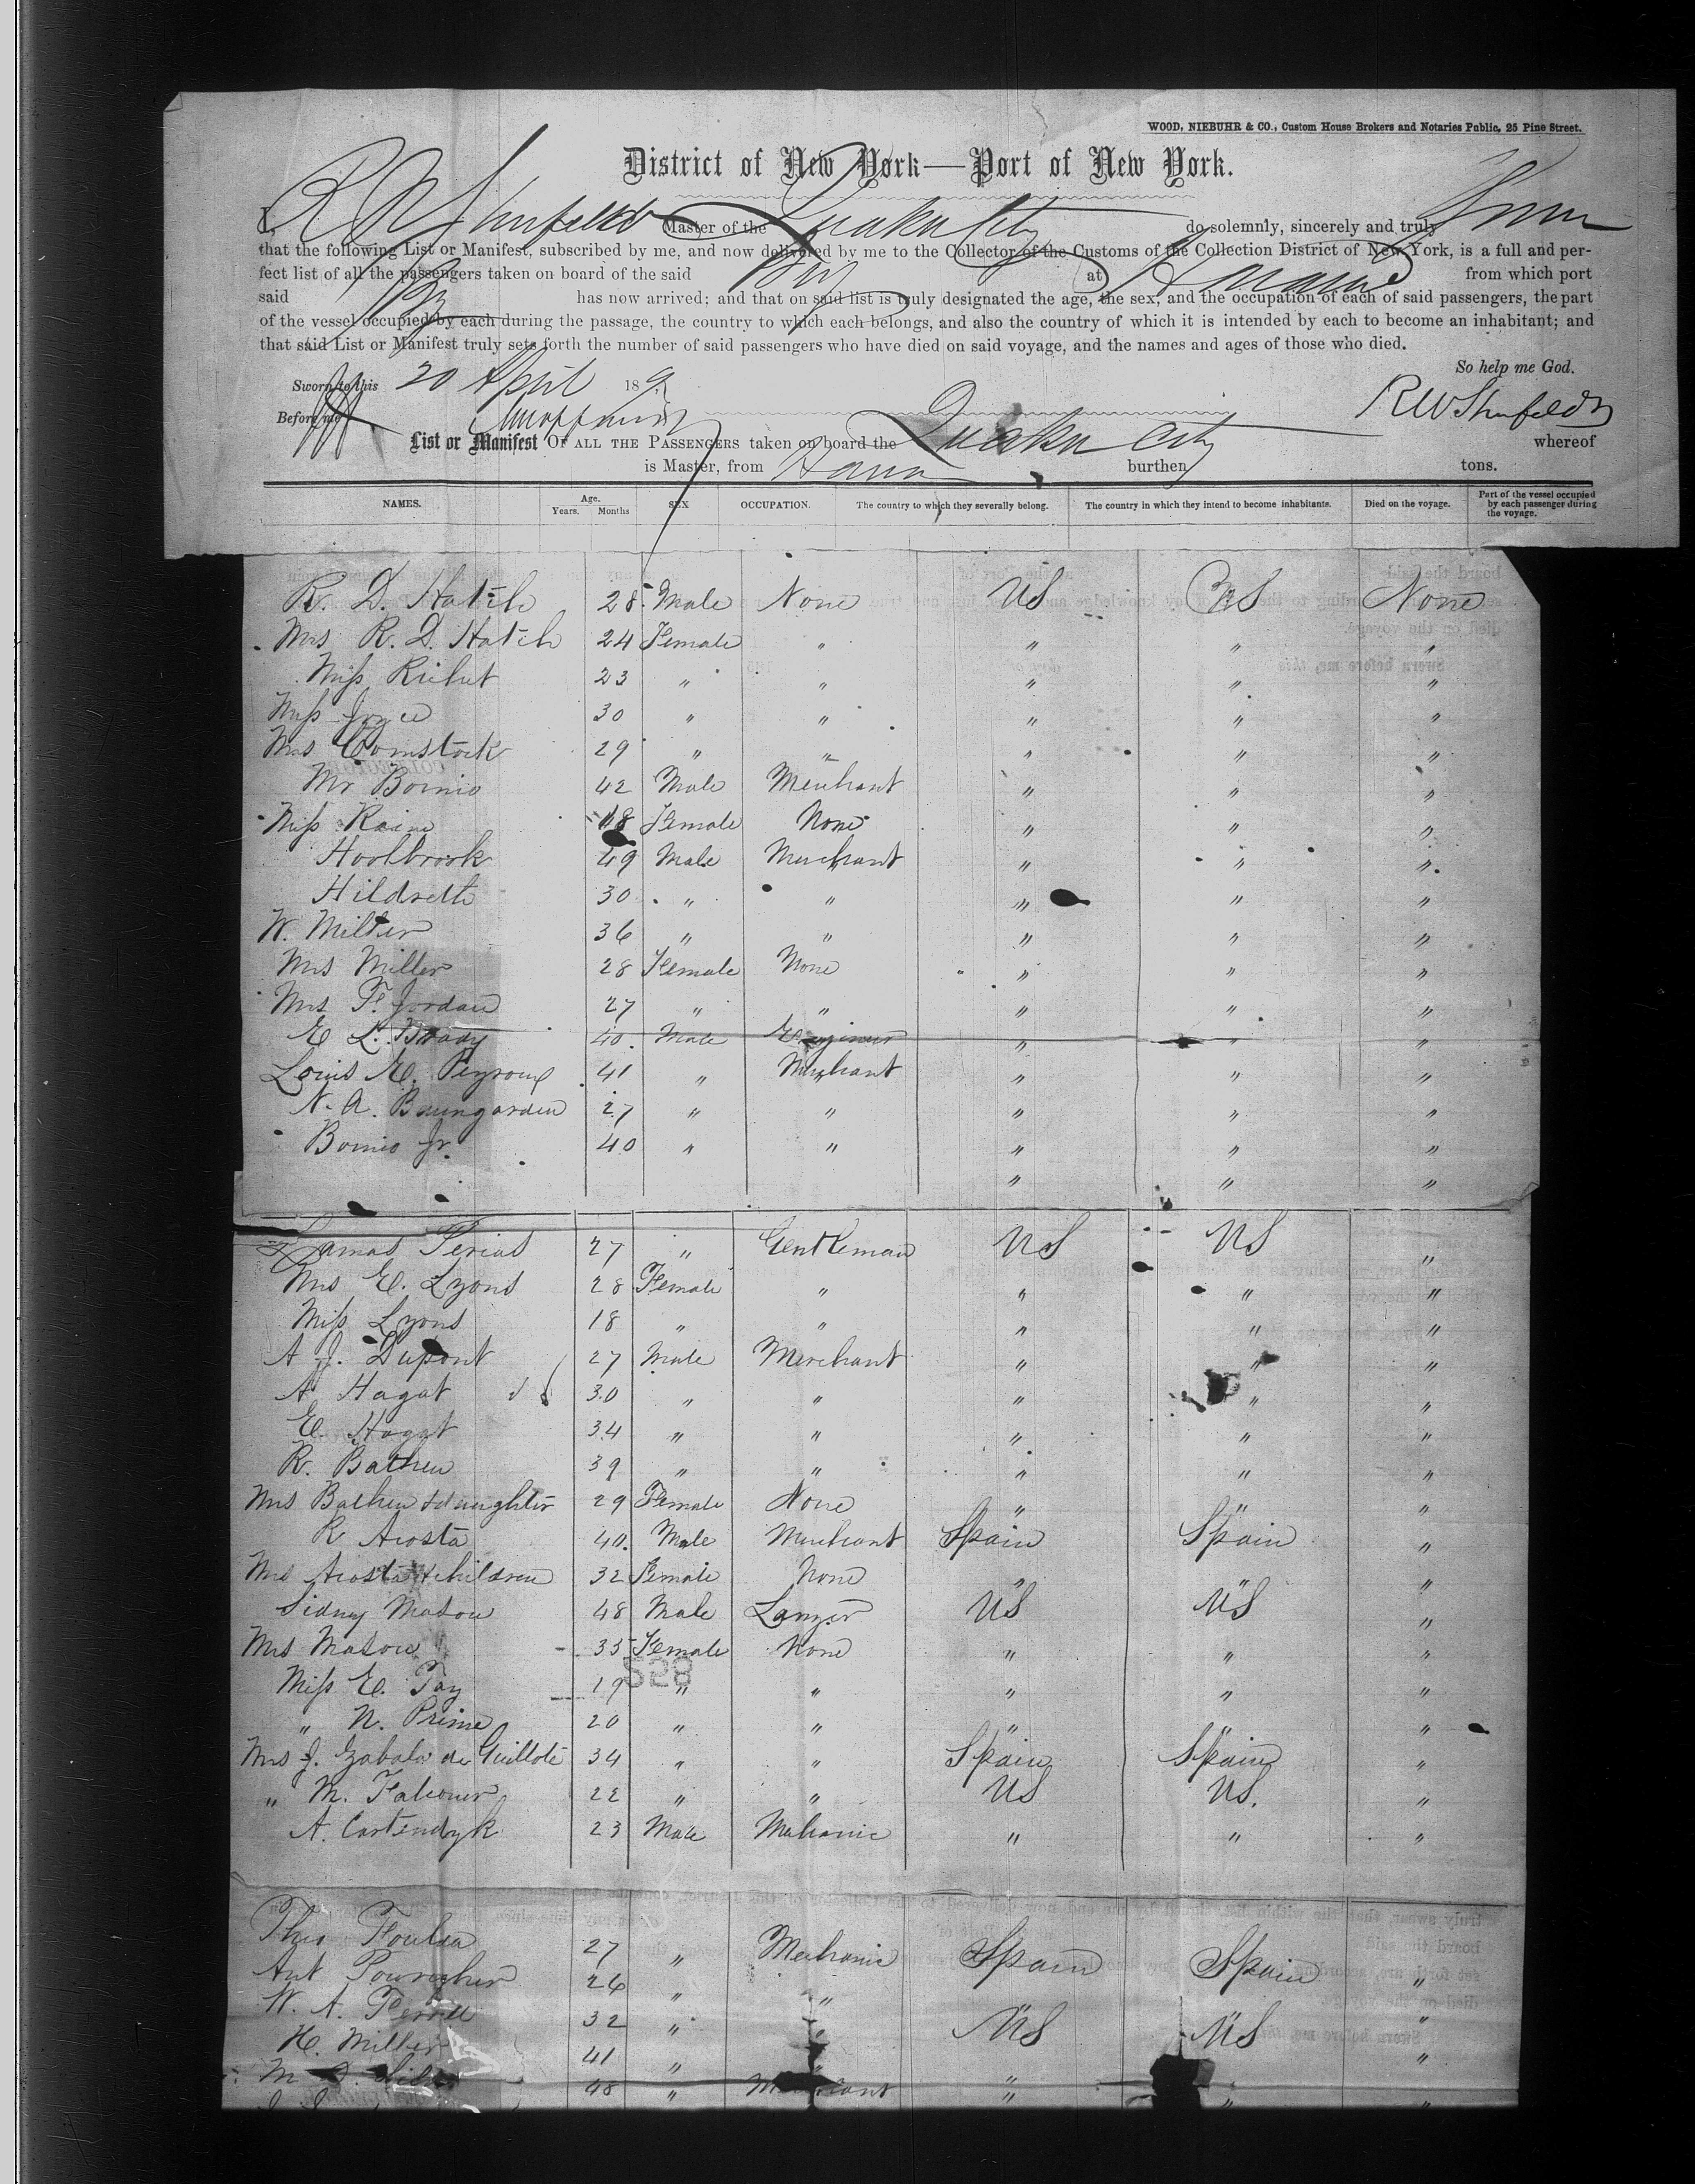 WOOD, NIEBUHR & CO., Custom House Brokers and Notaries Public, 25 Pine Street.
District of New York—Port of New York.
I, R W Shufeldt Master of the Quaker City do solemnly, sincerely and truly Swear
that the following List or Manifest, subscribed by me, and now delivered by me to the Collector of the Customs of the Collection District of New York, is a full and per-
fect list of all the passengers taken on board of the said at Havana from which port
said has now arrived; and that on said list is truly designated the age, the sex, and the occupation of each of said passengers, the part
of the vessel occupied by each during the passage, the country to which each belongs, and also the country of which it is intended by each to become an inhabitant; and
that said List or Manifest truly sets forth the number of said passengers who have died on said voyage, and the names and ages of those who died.
So help me God.
Sworn to this 20 April 189
Before me RW Shufeldt
List or Manifest OF ALL THE PASSENGERS taken on board the Quaker City whereof
is Master, from Havana burthen tons.
NAMES. Age. Years. Months SEX OCCUPATION. The country to which they severally belong. The country in which they intend to become inhabitants. Died on the voyage. Part of the vessel occupied by each passenger during the voyage.
R. D. Hatch 28 Male None US US None
Mrs R. D. Hatch 24 Female " " " "
Miss 23 " " " " "
Miss Joyce 30 " " " " "
Mrs Comstock 29 " " " " "
Mr Bornio 42 Male Merchant " " "
Miss 18 Female None " " "
Hoolbrook 49 Male Merchant " " "
Hildreth 30 " " " " "
W. Miller 36 " " " " "
Mrs Miller 28 Female None " " "
Mrs F. Jordan 27 " " " " "
E L. Brady 40 Male Engineer " " "
Louis E. Peyroux 41 " Merchant " " "
N. A. Baumgarden 27 " " " " "
Bornio Jr. 40 " " " " "
" " "
27 " Gentleman US US "
Mrs E. Lyons 28 Female " " " "
Miss Lyons 18 " " " " "
A J. Dupont 27 Male Merchant " " "
A. Hagat 30 " " " " "
E. Hagat 34 " " " " "
R. Bathew 39 " " " " "
Mrs Bathew & daughter 29 Female None " " "
R Acosta 40 Male Merchant Spain Spain "
Mrs Acosta & children 32 Female None " " "
Sidney Mason 48 Male US US "
Mrs Mason 35 Female None " " "
Miss E. Tay 19 " " " " "
" N. Prime 20 " " " " "
Mrs J. Zabala de Guillote 34 " " Spain Spain "
" M. Falconer 22 " " US US. "
A. Castendyk 23 Male Mechanic " " "
528
Theo 27 " Mechanic Spain Spain "
Ant 26 " " " " "
W. A. 32 " " US US "
H. Miller 41 " " " " "
M 48 " Merchant " " "